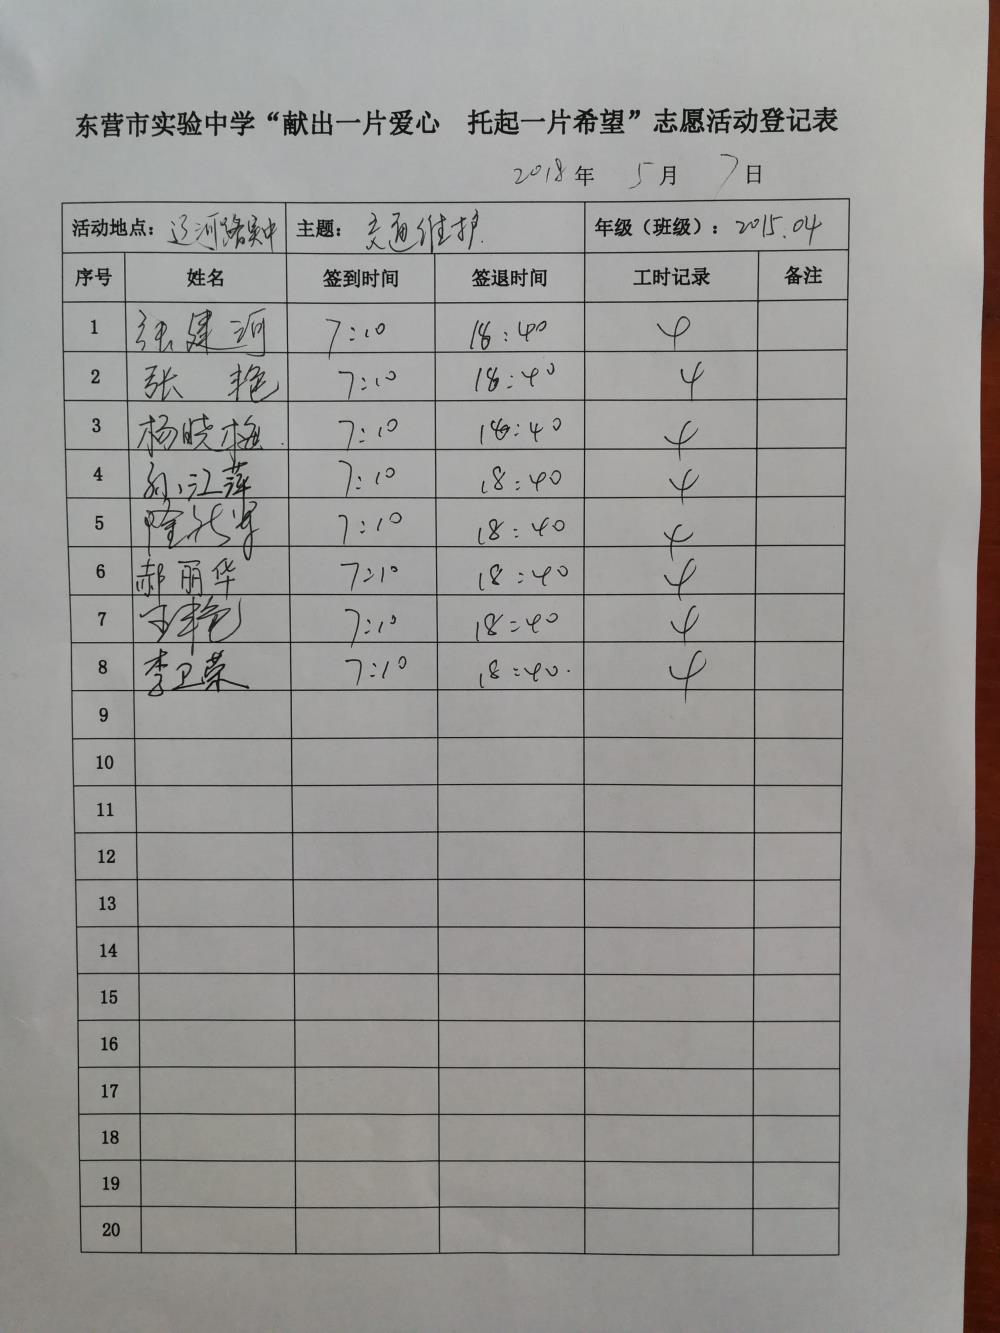 东营市实验中学“献出一片爱心 托起一片希望”志愿活动登记表
2018年 5月 7日
活动地点：辽河路实中 主题：交通维护. 年级（班级）：2015.04
序号 姓名 签到时间 签退时间 工时记录 备注
1 张建河 7:10 18:40 4
2 张 艳 7:10 18:40 4
3 杨晓梅. 7:10 18:40 4
4 孙江萍 7:10 18:40 4
5 隆 7:10 18:40 4
6 郝丽华 7:10 18:40 4
7 王艳 7:10 18:40 4
8 李卫荣 7:10 18:40. 4
9
10
11
12
13
14
15
16
17
18
19
20